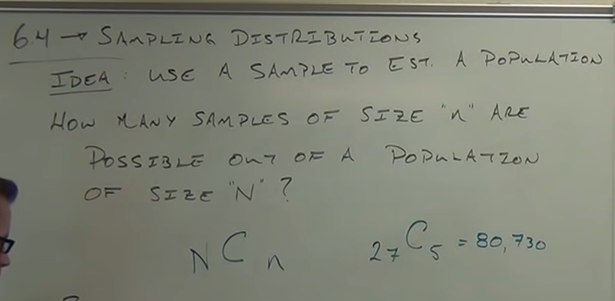 6.4 → SAMPLING DISTRIBUTIONS
IDEA: USE A SAMPLE TO EST. A POPULATION
HOW MANY SAMPLES OF SIZE "n" ARE
POSSIBLE OUT OF A POPULATION
OF SIZE "N"?
NCn 27C5 = 80,730